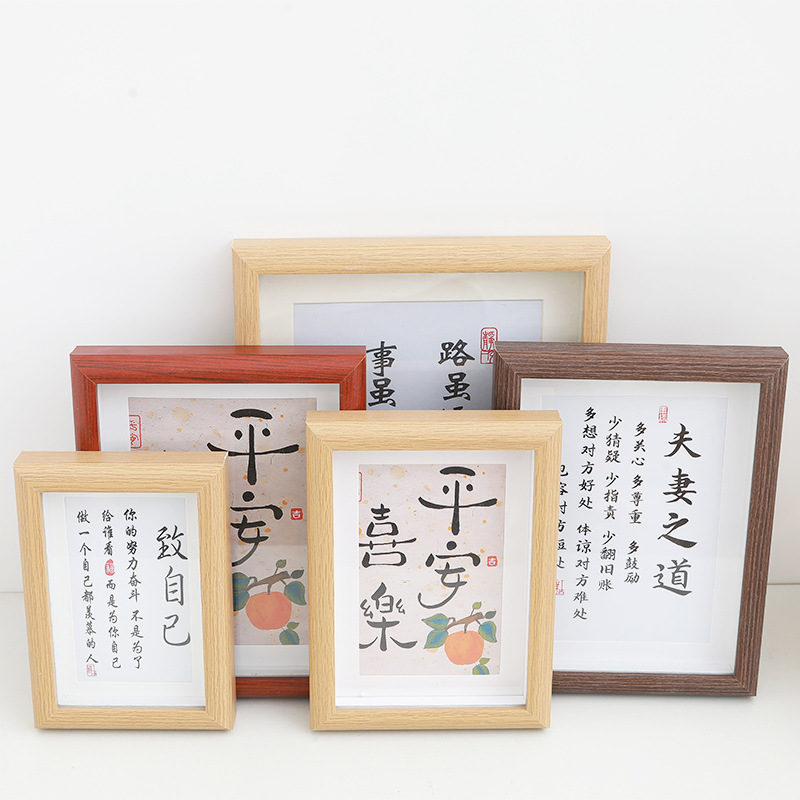 路虽
事虽
平安
平安
喜樂
吉
致自己
你的努力奋斗 不是为了
给谁看 而是为你自己
做一个自己都羡慕的人
夫妻之道
多关心 多尊重 多鼓励
少猜疑 少指责 少翻旧账
多想对方好处 体谅对方难处
包容对方短处